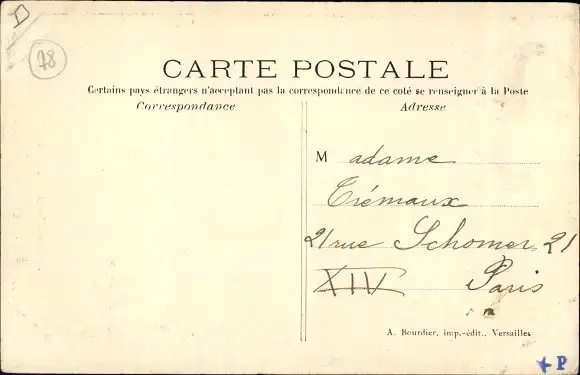 D
78
CARTE POSTALE
Certains pays étrangers n'acceptant pas la correspondance de ce coté se renseigner à la Poste
Correspondance
Adresse
M adame
Trémaux
21 rue Schomer 21
XIV Paris
A. Bourdier, imp.-édit., Versailles
P